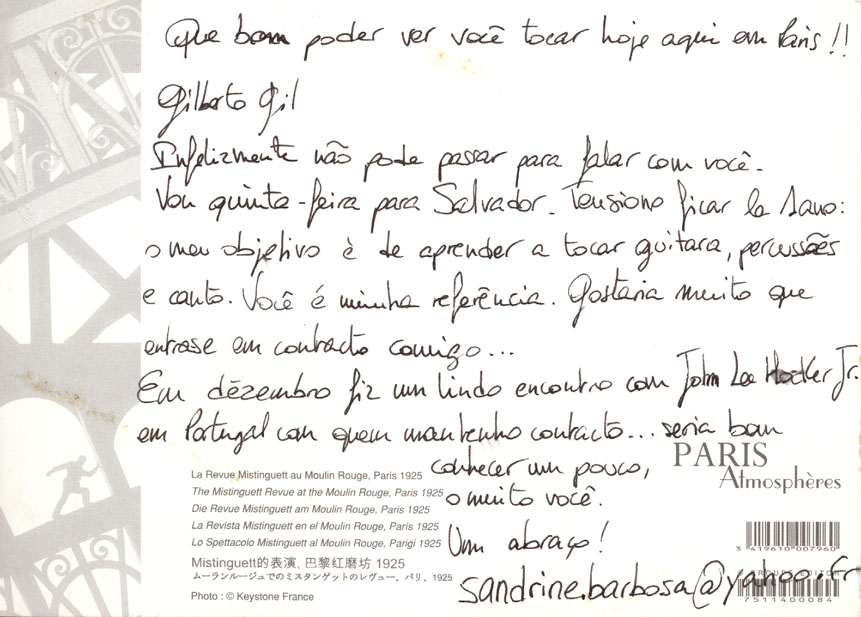 Que bom poder ver você tocar hoje aqui em Paris !!
Gilberto Gil
Infelizmente não pode passar para falar com você.
Vou quinta-feira para Salvador. Tensiono ficar la 1 ano:
o meu objetivo è de aprender a tocar guitara, percussões
e canto. Você é minha referência. Gostaria muito que
entrase em contracto comigo...
Em dézembro fiz um lindo encontro com John Lee Hooker Jr.
em Portugal com quem mantenho contacto... seria bom
conhecer um pouco,
o muito você.
Um abraço !
sandrine.barbosa@yahoo.fr
PARIS
Atmosphères
La Revue Mistinguett au Moulin Rouge, Paris 1925
The Mistinguett Revue at the Moulin Rouge, Paris 1925
Die Revue Mistinguett am Moulin Rouge, Paris 1925
La Revista Mistinguett en el Moulin Rouge, Paris 1925
Lo Spettacolo Mistinguett al Moulin Rouge, Parigi 1925
Mistinguett的表演, 巴黎红磨坊 1925
ムーランルージュでのミスタンゲットのレヴュー、パリ、1925
Photo : © Keystone France
3 419610 007960
7511400084